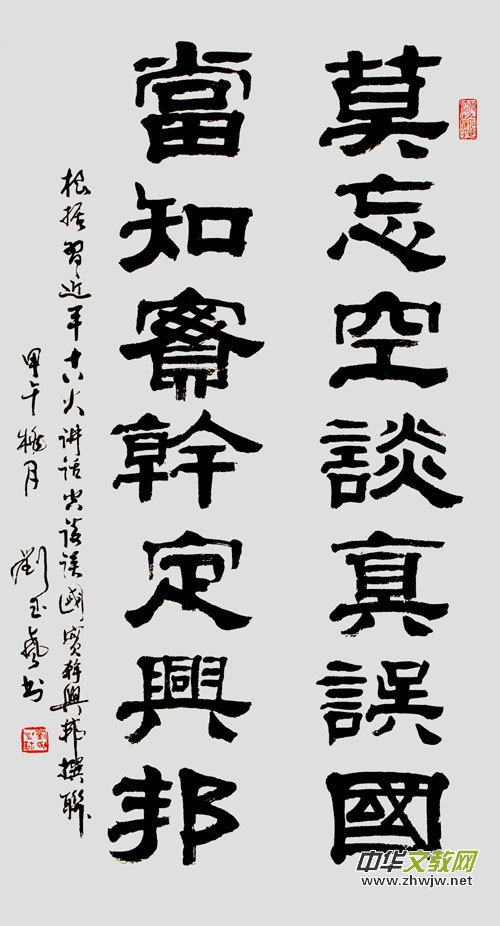 莫忘空談真誤國
當知實幹定興邦
根据習近平十八大讲话空谈误國實幹興邦撰聯
甲午 月 劉玉 书
中华文教网
www.zhwjw.net